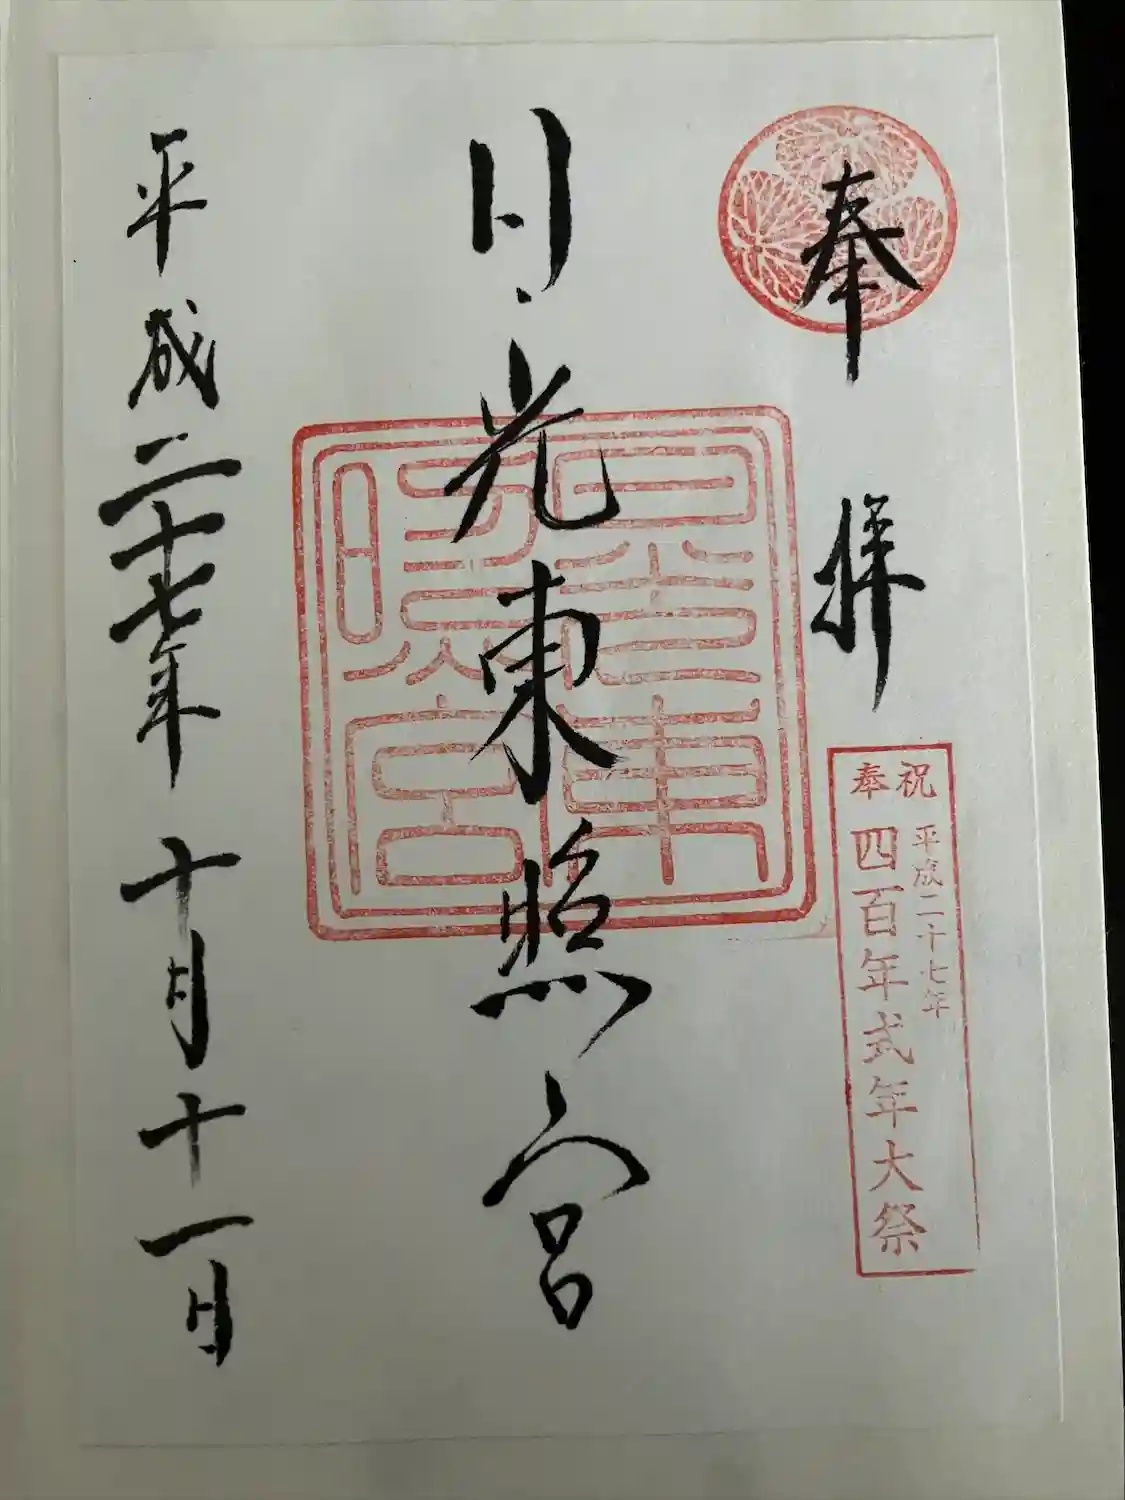 奉拝
奉祝
平成二十七年
四百年式年大祭
日光東照宮
平成二十七年十月十一日